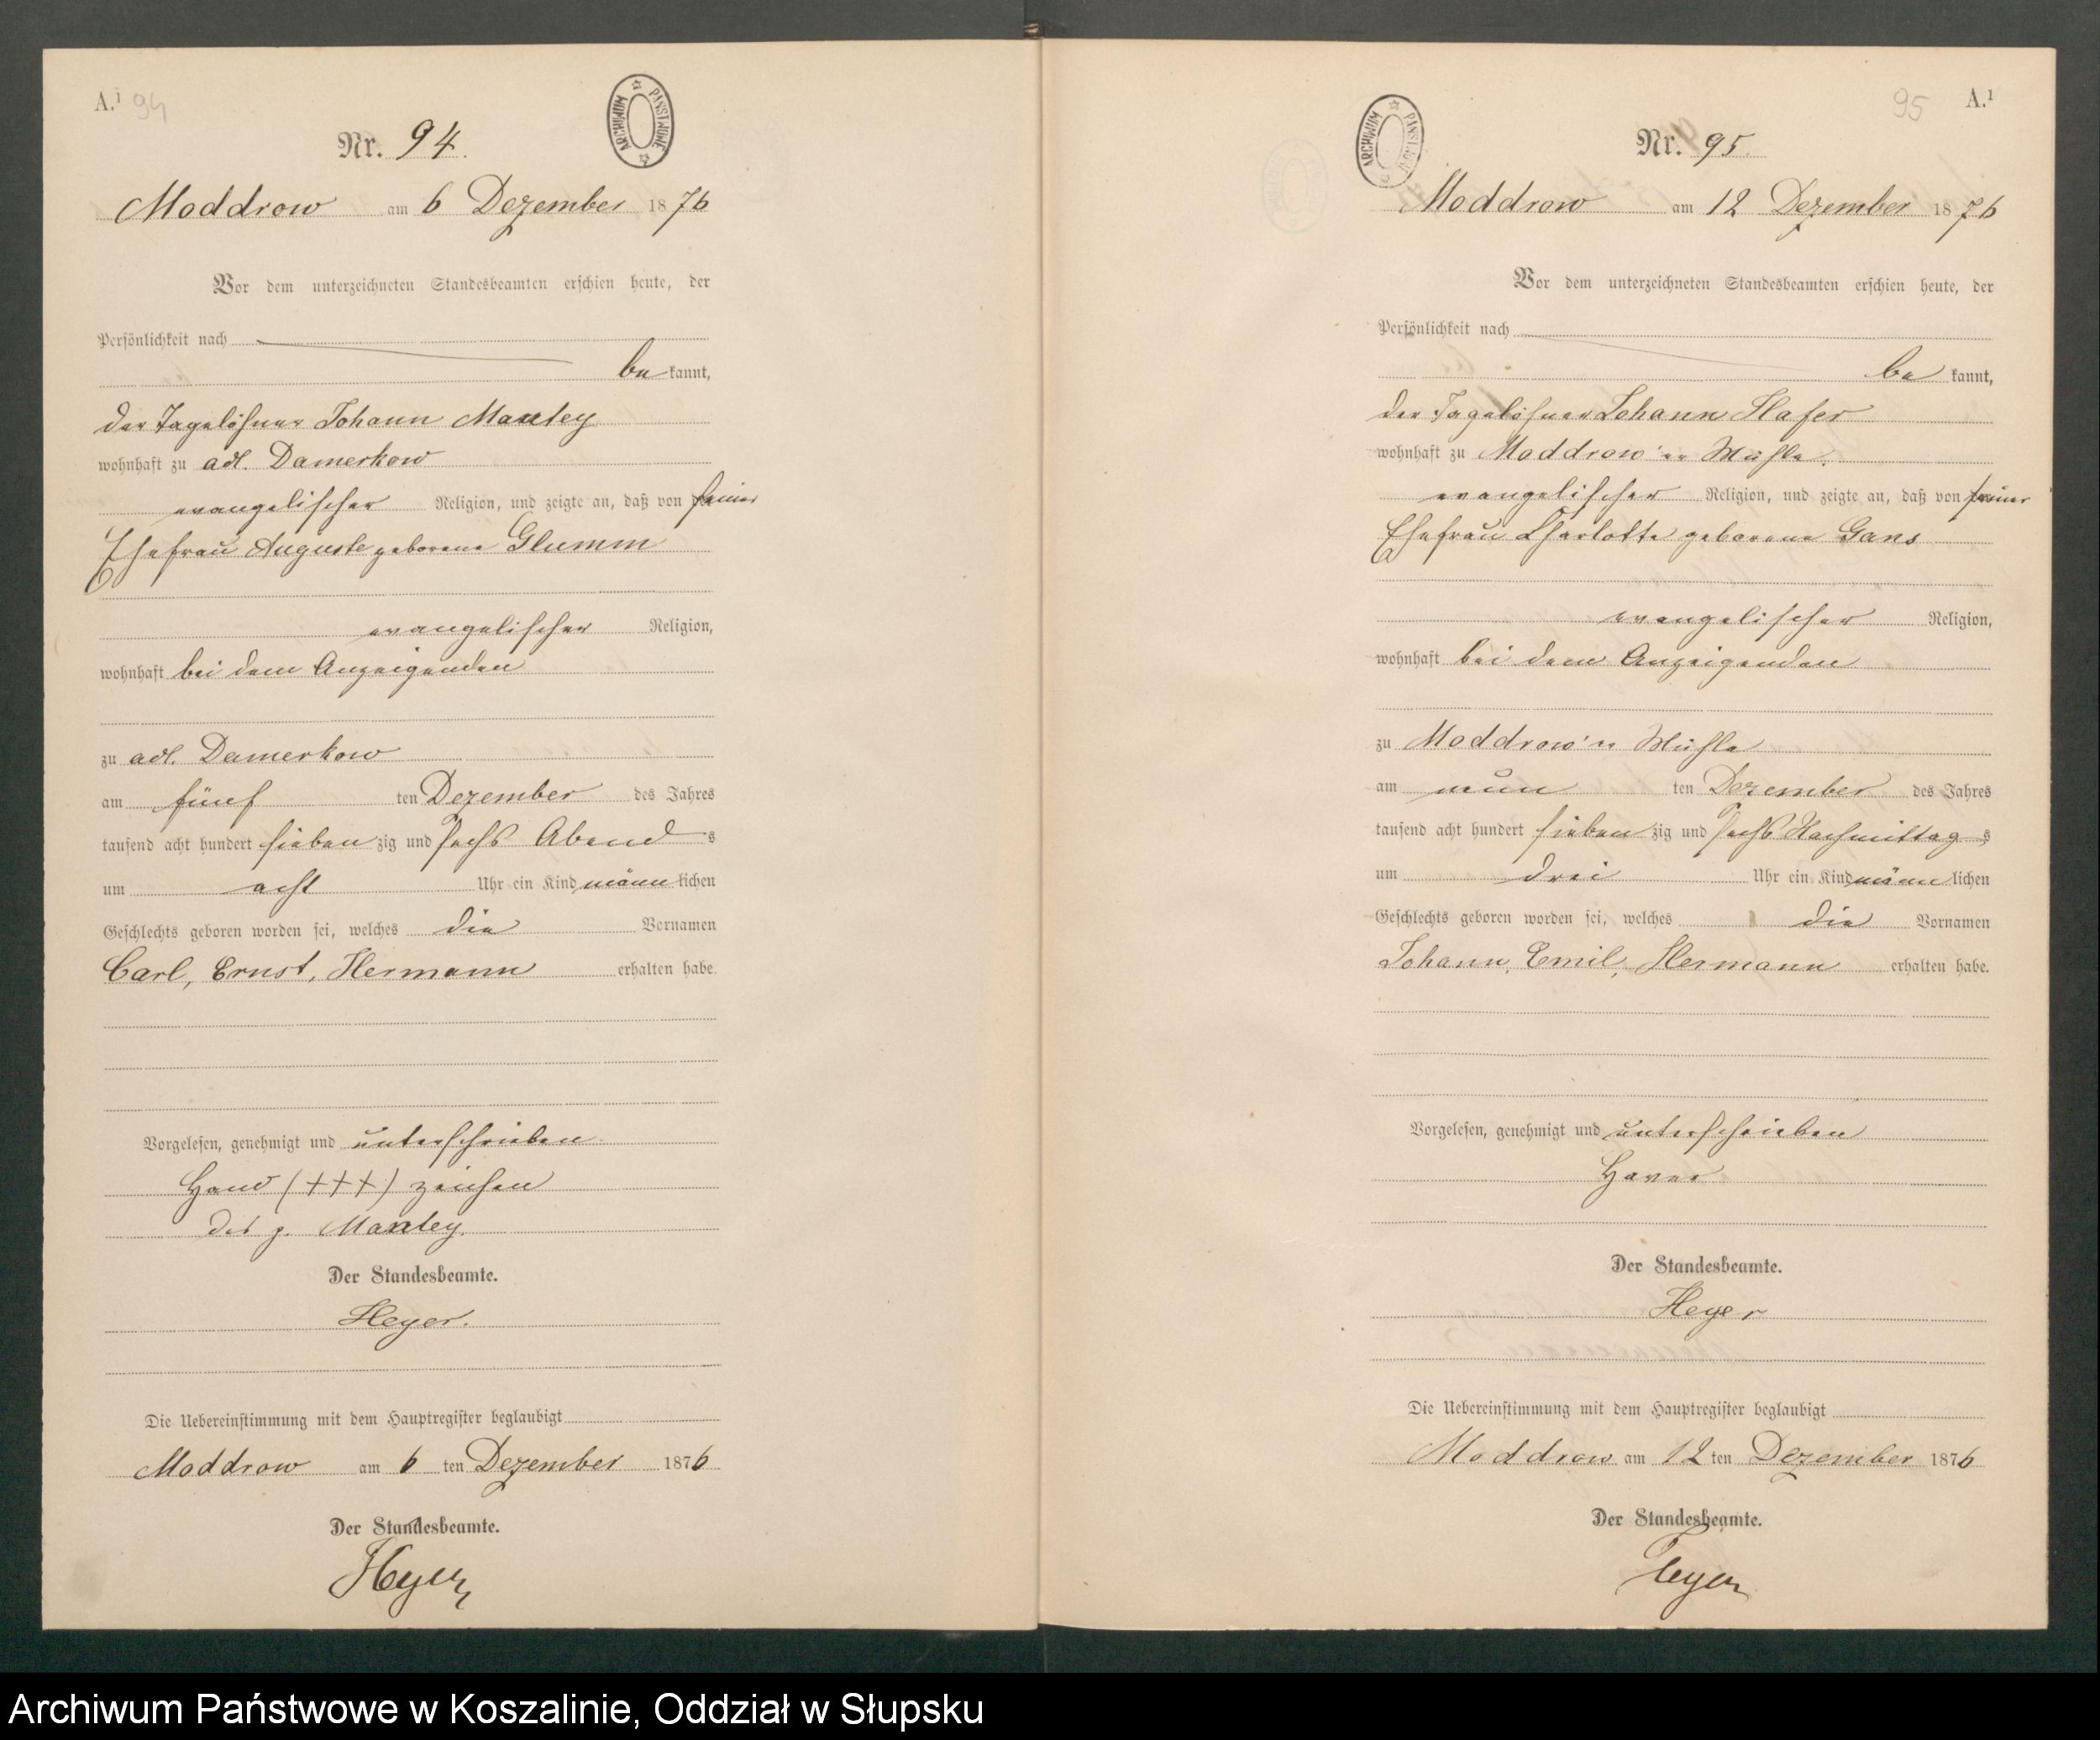 A.¹ 94
ARCHIWUM PAŃSTWOWE
Nr. 94.
Moddrow am 6 Dezember 1876
Vor dem unterzeichneten Standesbeamten erschien heute, der
Persönlichkeit nach
be kannt,
der Tagelöhner Johann Manley
wohnhaft zu adl. Damerkow
evangelischer Religion, und zeigte an, daß von seiner
Ehefrau Auguste geborene Glumm
evangelischer Religion,
wohnhaft bei dem Anzeigenden
zu adl. Damerkow
am fünf ten Dezember des Jahres
tausend acht hundert sieben zig und sechs Abend s
um acht Uhr ein Kind männ lichen
Geschlechts geboren worden sei, welches die Vornamen
Carl, Ernst, Hermann erhalten habe.
Vorgelesen, genehmigt und unterschrieben
Hand (+++) zeichen
des p. Manley.
Der Standesbeamte.
Heyer.
Die Uebereinstimmung mit dem Hauptregister beglaubigt
Moddrow am 6 ten Dezember 1876
Der Standesbeamte.
Heyer
95 A.¹
ARCHIWUM PAŃSTWOWE
Nr. 95.
Moddrow am 12 Dezember 1876
Vor dem unterzeichneten Standesbeamten erschien heute, der
Persönlichkeit nach
be kannt,
der Tagelöhner Johann Hafer
wohnhaft zu Moddrow'er Mühle.
evangelischer Religion, und zeigte an, daß von seiner
Ehefrau Charlotte geborene Gans
evangelischer Religion,
wohnhaft bei dem Anzeigenden
zu Moddrow'r Mühle
am neun ten Dezember des Jahres
tausend acht hundert sieben zig und sechs Nachmittag s
um drei Uhr ein Kind männ lichen
Geschlechts geboren worden sei, welches die Vornamen
Johann, Emil, Hermann erhalten habe.
Vorgelesen, genehmigt und unterschrieben
Der Standesbeamte.
Heyer
Die Uebereinstimmung mit dem Hauptregister beglaubigt
Moddrow am 12 ten Dezember 1876
Der Standesbeamte.
Heyer
Archiwum Państwowe w Koszalinie, Oddział w Słupsku